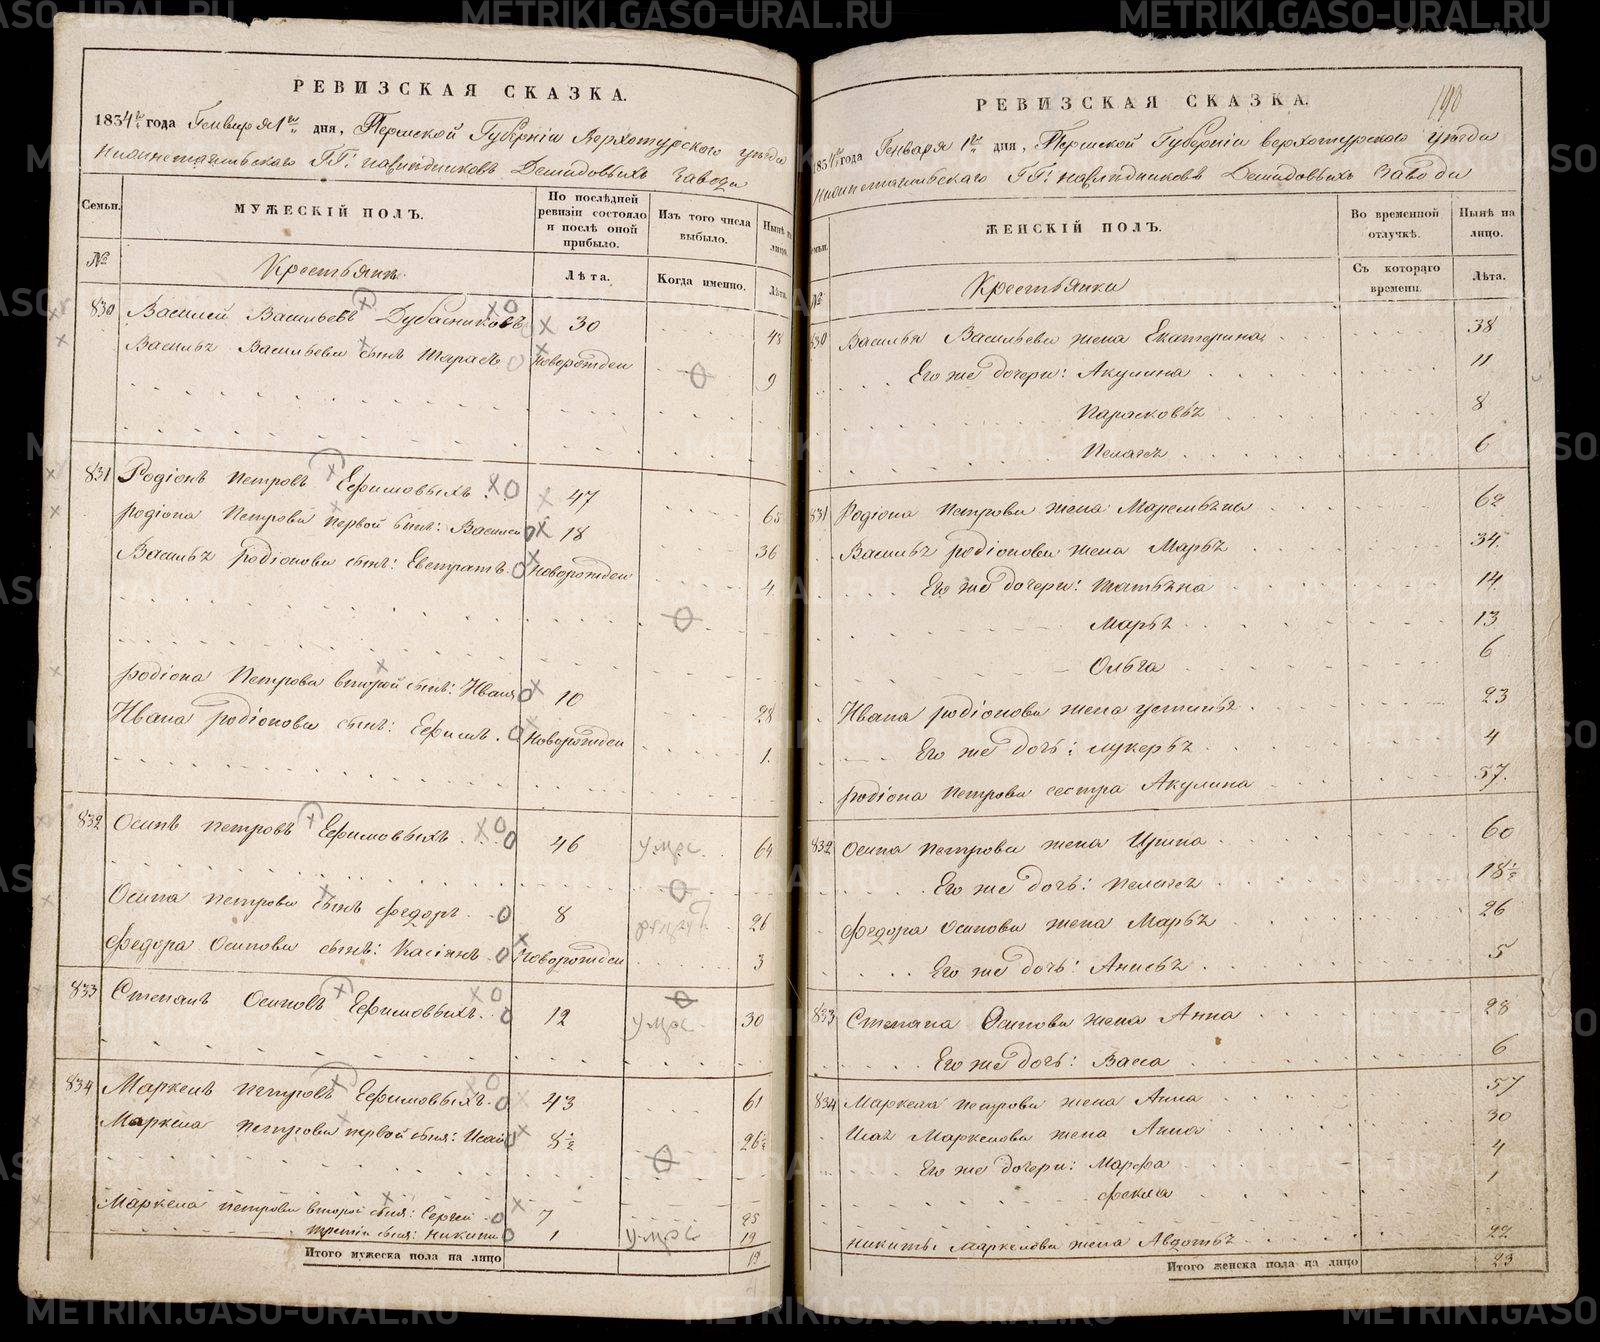 РЕВИЗСКАЯ СКАЗКА.
1834го года Генваря 1го дня, Пермской Губерніи Верхотурского уезда
Нижнетагильскаго ГГ: наследниковъ Демидовыхъ завода
Семьи. МУЖЕСКІЙ ПОЛЪ. По послѣдней ревизіи состояло и послѣ оной прибыло. Изъ того числа выбыло. Нынѣ на лицо.
№ Крестьяне Лѣта. Когда именно. Лѣта.
830 Василей Васильевъ Дубасниковъ 30 48
Василья Васильева сынъ Тарасъ новорожден 9
831 Родіонъ Петровъ Ефимовыхъ 47 65
Родіона Петрова первой сынъ: Василей 18 36
Василья Родіонова сынъ: Евстратъ новорожден 4
Родіона Петрова второй сынъ: Иванъ 10 28
Ивана Родіонова сынъ: Ефимъ новорожден 1
832 Осипъ Петровъ Ефимовыхъ 46 умре 64
Осипа Петрова сынъ Федоръ 8 26
Федора Осипова сынъ: Касіянъ новорожден 3
833 Степанъ Осиповъ Ефимовыхъ 12 умре 30
834 Маркелъ Петровъ Ефимовыхъ 43 61
Маркела Петрова первой сынъ: Исай 8½ 26½
Маркела Петрова второй сынъ: Сергей 7 25
третій сынъ: Никита 1 умре 19
Итого мужеска пола на лицо 19
РЕВИЗСКАЯ СКАЗКА.
1834го года Генваря 1го дня, Пермской Губерніи верхотурскаго уезда
Нижнетагильскаго ГГ: наследниковъ Демидовыхъ завода
ЖЕНСКІЙ ПОЛЪ. Во временной отлучкѣ. Нынѣ на лицо.
№ Крестьянки Съ котораго времени. Лѣта.
830 Василья Васильева жена Екатерина 38
Его же дочери: Акулина 11
Парасковья 8
Пелагея 6
831 Родіона Петрова жена Маремьяна 62
Василья Родіонова жена Марья 34
Его же дочери: Татьяна 14
Марья 13
Ольга 6
Ивана Родіонова жена Устинья 23
Его же дочь: Лукерья 4
Родіона Петрова сестра Акулина 57
832 Осипа Петрова жена Ирина 60
Его же дочь: Пелагея 18½
Федора Осипова жена Марья 26
Его же дочь: Анисья 5
833 Степана Осипова жена Анна 28
Его же дочь: Васса 6
834 Маркела Петрова жена Анна 57
Исая Маркелова жена Анна 30
Его же дочери: Марфа 4
Фекла 1
Никиты Маркелова жена Авдотья 22
Итого женска пола на лицо 23
METRIKI.GASO-URAL.RU